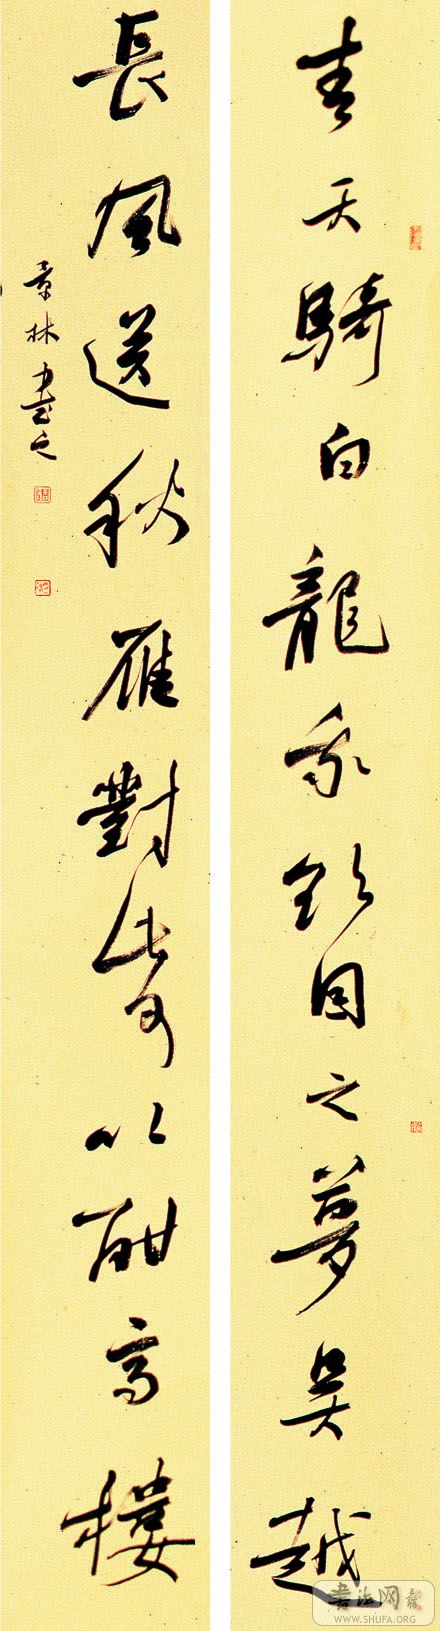 青天騎白龍我欲因之夢吳越
長風送秋雁對此可以酣高樓
景林書之
書法网
WWW.SHUFA.ORG